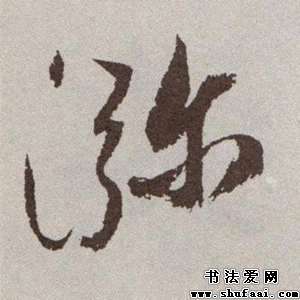 㳽
书法爱网
www.shufaai.com